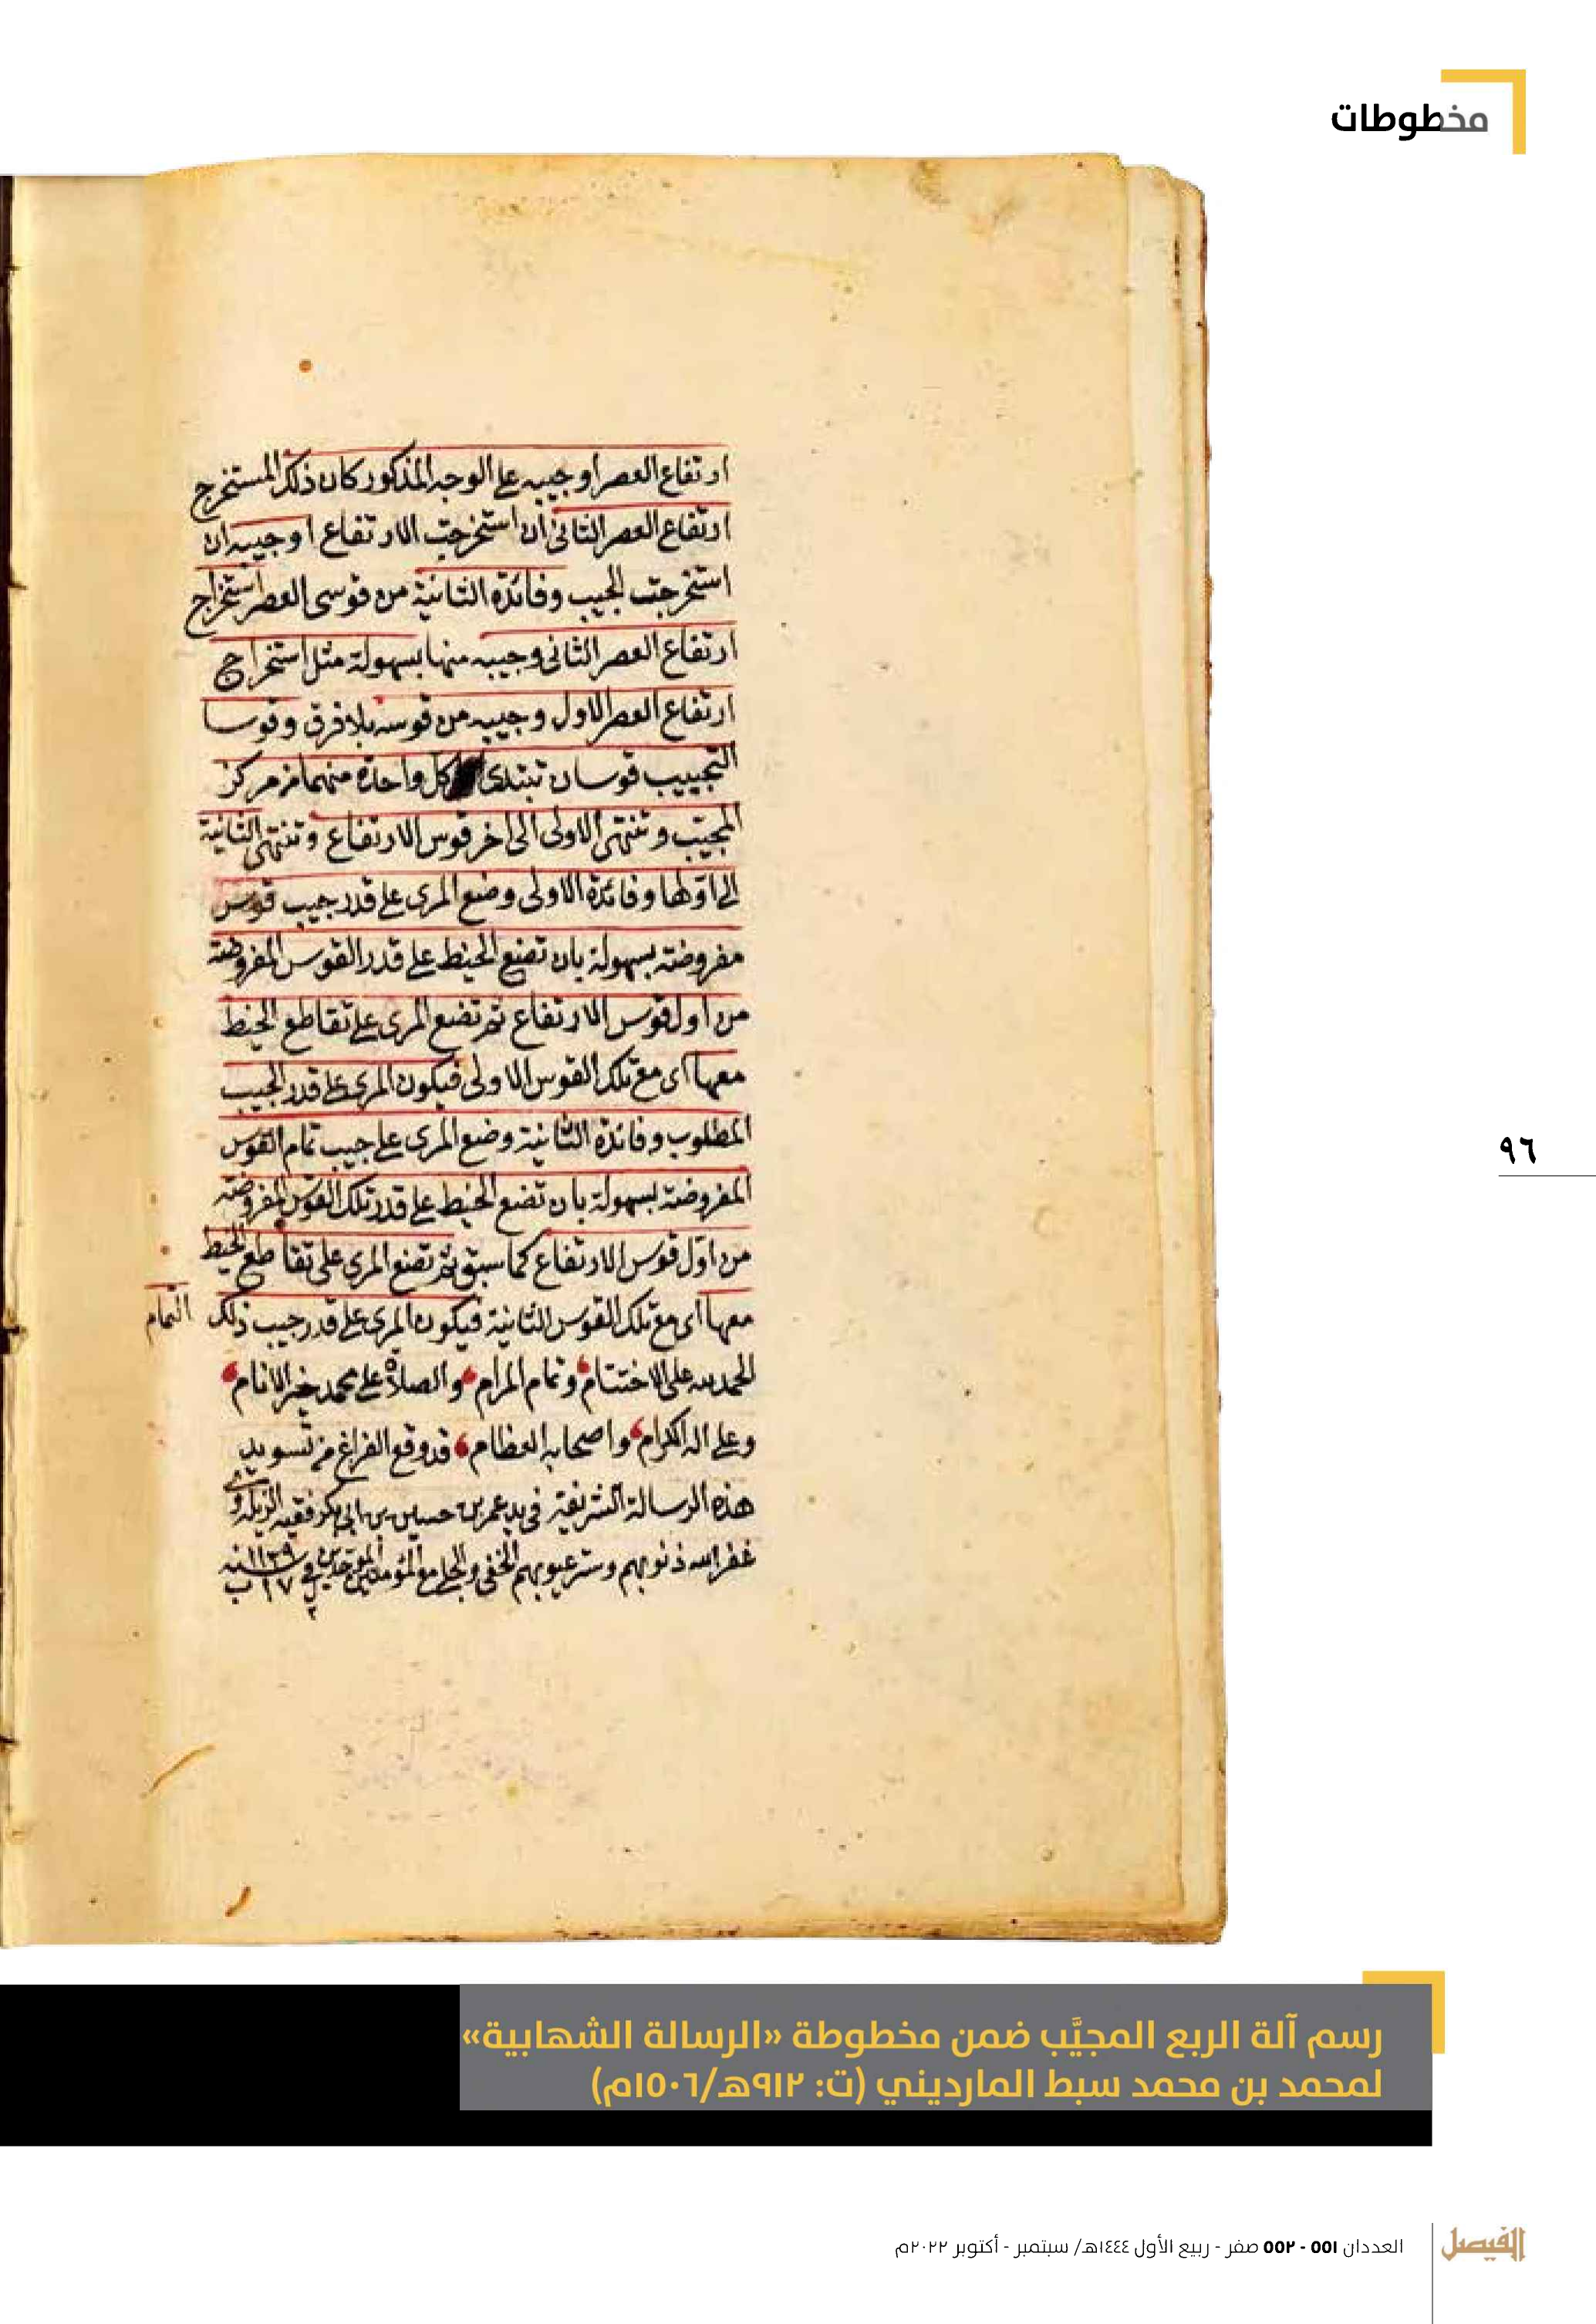 مخطوطات
ارتفاع العصر او جيبه على الوجه المذكور كان ذلك المستخرج
ارتفاع العصر الثانى ان استخرجت الارتفاع او جيبه ان
استخرجت الجيب وفائدة الثانية من قوسى العصر استخراج
ارتفاع العصر الثانى وجيبه منها بسهولة مثل استخراج
ارتفاع العصر الاول وجيبه من قوسه بلا فرق وقوسا
التجييب قوسان تبتدى كل واحدة منهما من مركز
المجيب وتنتهى الاولى الى اخر قوس الارتفاع وتنتهى الثانية
الى اولها وفائدة الاولى وضع المرى على قدر جيب قوس
مفروضة بسهولة بان تضع الخيط على قدر القوس المفروضة
من اول قوس الارتفاع ثم تضع المرى على تقاطع الخيط
معها اى مع تلك القوس الاولى فيكون المرى على قدر الجيب
المطلوب وفائدة الثانية وضع المرى على جيب تمام القوس
المفروضة بسهولة بان تضع الخيط على قدر تلك القوس المفروضة
من اول قوس الارتفاع كما سبق ثم تضع المرى على تقاطع الخيط
معها اى مع تلك القوس الثانية فيكون المرى على قدر جيب ذلك التمام
الحمد لله على الاختتام وتمام المرام والصلاة على محمد خير الانام
وعلى اله الكرام واصحابه العظام قد وقع الفراغ من تسويد
هذه الرسالة الشريفة فى يد عمر بن حسين بن ابى بكر فقيه
غفر الله ذنوبهم وستر عيوبهم الخفى والجلى مع المؤمنين فى سنه ١١٣٩
٩٦
رسم آلة الربع المجيَّب ضمن مخطوطة «الرسالة الشهابية»
لمحمد بن محمد سبط المارديني (ت: ٩١٢هـ/١٥٠٦م)
العددان ٥٥١ - ٥٥٢ صفر - ربيع الأول ١٤٤٤هـ/ سبتمبر - أكتوبر ٢٠٢٢م
الفيصل